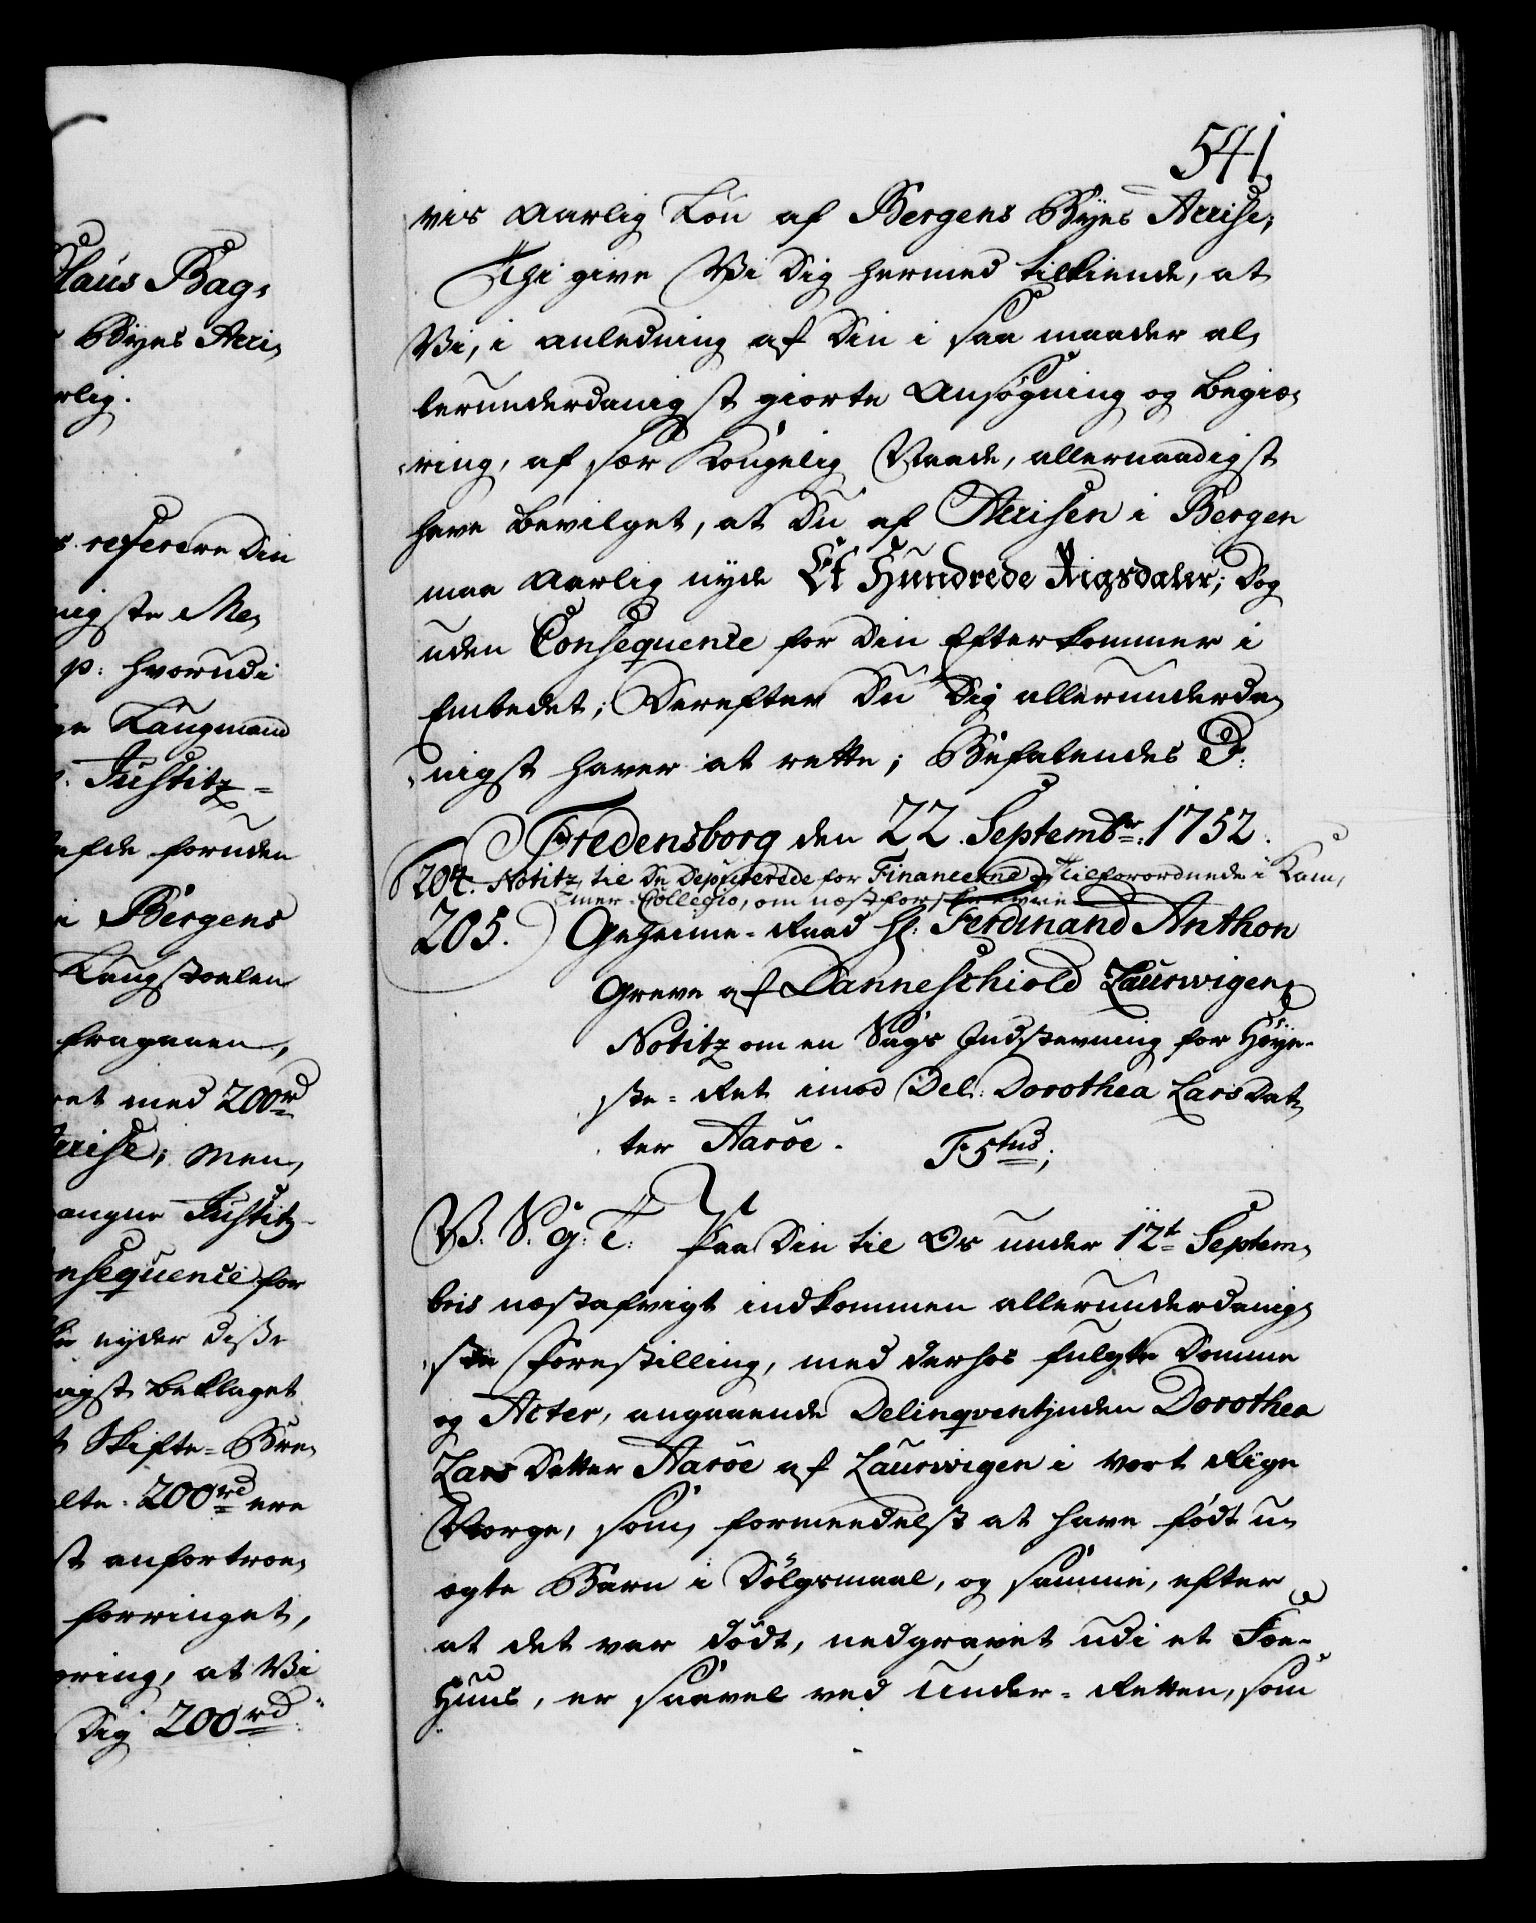 541.
vis aarlig Løn af Bergens Byes Accise;
Thi give Vi Dig hermed tilkiende, at
Vi, i anledning af Din i saa maader al,
lerunderdanigst giorte Ansøgning og begiæ,
ring, af sær Kongelig Naade, allernaadigst
have bevilget, at Du af Accisen i Bergen
maa aarlig nyde Et Hundrede Rigsdaler; Dog
uden Consequence for Din Efterkommer i
Embedet; Derefter Du Dig allerunderda,
nigst haver at rette; Befalendes P:
Fredensborg den 22. Septembr: 1752.
204. Notitz til De Deputerede for Financerne og Tilforordnede i Kam,
mer-Collegio, om næstforskrevne
205. Geheime-Raad Hr: Ferdinand Anthon
Greve af Danneschiold Laurwigen,
Notitz om en Sags Indstevning for Høye-
ste-Ret imod Del: Dorothea Lars Dat,
ter Aarøe. F 5tus;
V. S. G. T. Paa Din til Os under 12t Septem,
bris næstafvigt indkommen allerunderdanig,
ste Forestilling, med derhos fulgte Domme
og Acter, angaaende Delinqventinden Dorothea
Lars Datter Aarøe af Laurwigen i vort Rige
Norge, som, formedelst at have født u,
ægte Barn i Dølgsmaal, og samme, efter
at det var dødt, nedgravet udi et Foe-
Huus, er saavel ved Under-Retten, som
Claus Bag,
Byes Acci,
rlig.
referere Din
nigste Me,
p: hvorudi
Laugmand
Justitz-
efde foruden
i Bergens
Laugstoelen
fragaaen,
ret med 200rd
Accise; men,
angne Justitz-
nsequence for
nyder disse
nigst beklaget
Skifte-Bre,
elte 200rd ere
st anfortroe,
forringet,
øring, at Vi
Dig 200rd: